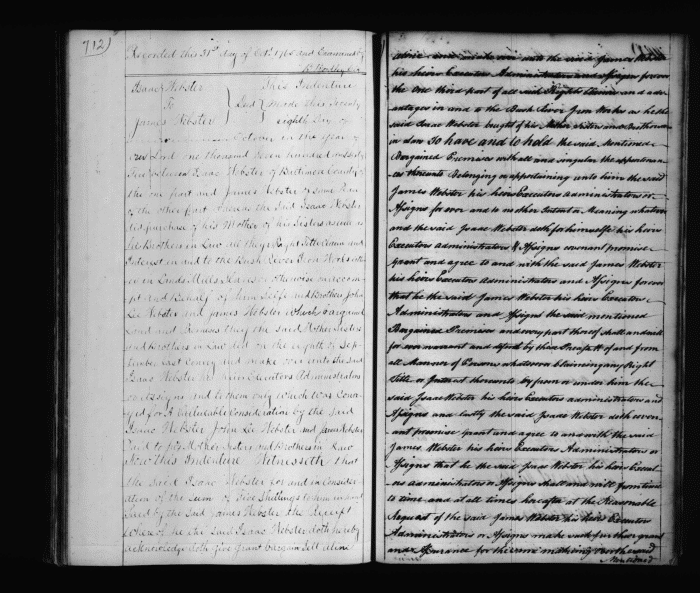 712)
Recorded this 31st day of Octr. 1765 and Examined by
Isaac Webster This Indenture
To Deed made this Twenty
James Webster eighth Day of
October in the year of
our Lord one thousand Seven hundred and Sixty
five between Isaac Webster of Baltimore County of
the one part and James Webster of same
of the other part Whereas the Said Isaac Webster
did purchase of his Mother of his Sisters as well as
his Brothers in Law all they Right Title Claim and
Interest in and to the Bush River Iron Works
in Lands Mills Slaves or otherwise on accom
pt and Behalf of him Self and Brothers John
Lee Webster and James Webster which bargained
Land and Premises they the said Mother Sisters
and Brothers in Law did on the eighth of Sep
tember last Convey and make over unto the Said
Isaac Webster his heirs Executors Administrators
and Assigns and to them only which was Conv
ey'd for A Valuable Consideration by the Said
Isaac Webster John Lee Webster and James Webster
paid to Mother Sisters and Brothers in Law
Now this Indenture Witnesseth that
the said Isaac Webster for and in Consider
ation of the Sum of five Shillings to him in hand
paid by the Said James Webster the Receipt
Where of he the said Isaac Webster doth hereby
acknowledge doth Give grant bargain Sell aliene
aliene and make over unto the said James Webster
his heirs Executors Administrators and Assigns forever
the One third part of all said Rights Claims and adv
antages in and to the Bush River Iron Works as he the
said Isaac Webster bought of his Mother Sisters and Brothers
in Law To have and to hold the said Mentioned
Bargained Premises with all and singular the appurtenan
ces thereunto Belonging or appertaining unto him the said
James Webster his heirs Executors Administrators or
Assigns for ever and to no other Intent or Meaning whatever
and the said Isaac Webster doth for himself his heirs
Executors administrators & Assigns covenant promise
grant and agree to and with the said James Webster
his heirs Executors Administrators and Assigns for ever
that he the said James Webster his heirs Executors
Administrators and Assigns the said mentioned
Bargained Premises and every part thereof shall and will
for ever warrant and defend by these Presents of and from
all Manner of Persons whatsoever claiming any Right
Title or Interest thereunto by from or under him the
said Isaac Webster his heirs Executors administrators and
Assigns and lastly the said Isaac Webster doth coven
ant promise grant and agree to and with the said
James Webster his heirs Executors Administrators or
Assigns that he the said Isaac Webster his heirs Execut
ors Administrators or Assigns shall and will from time
to time and at all times hereafter at the Reasonable
Request of the said James Webster his heirs Executors
Administrators or Assigns make said further grant
and Assurance for the sure making over the said
Mentioned